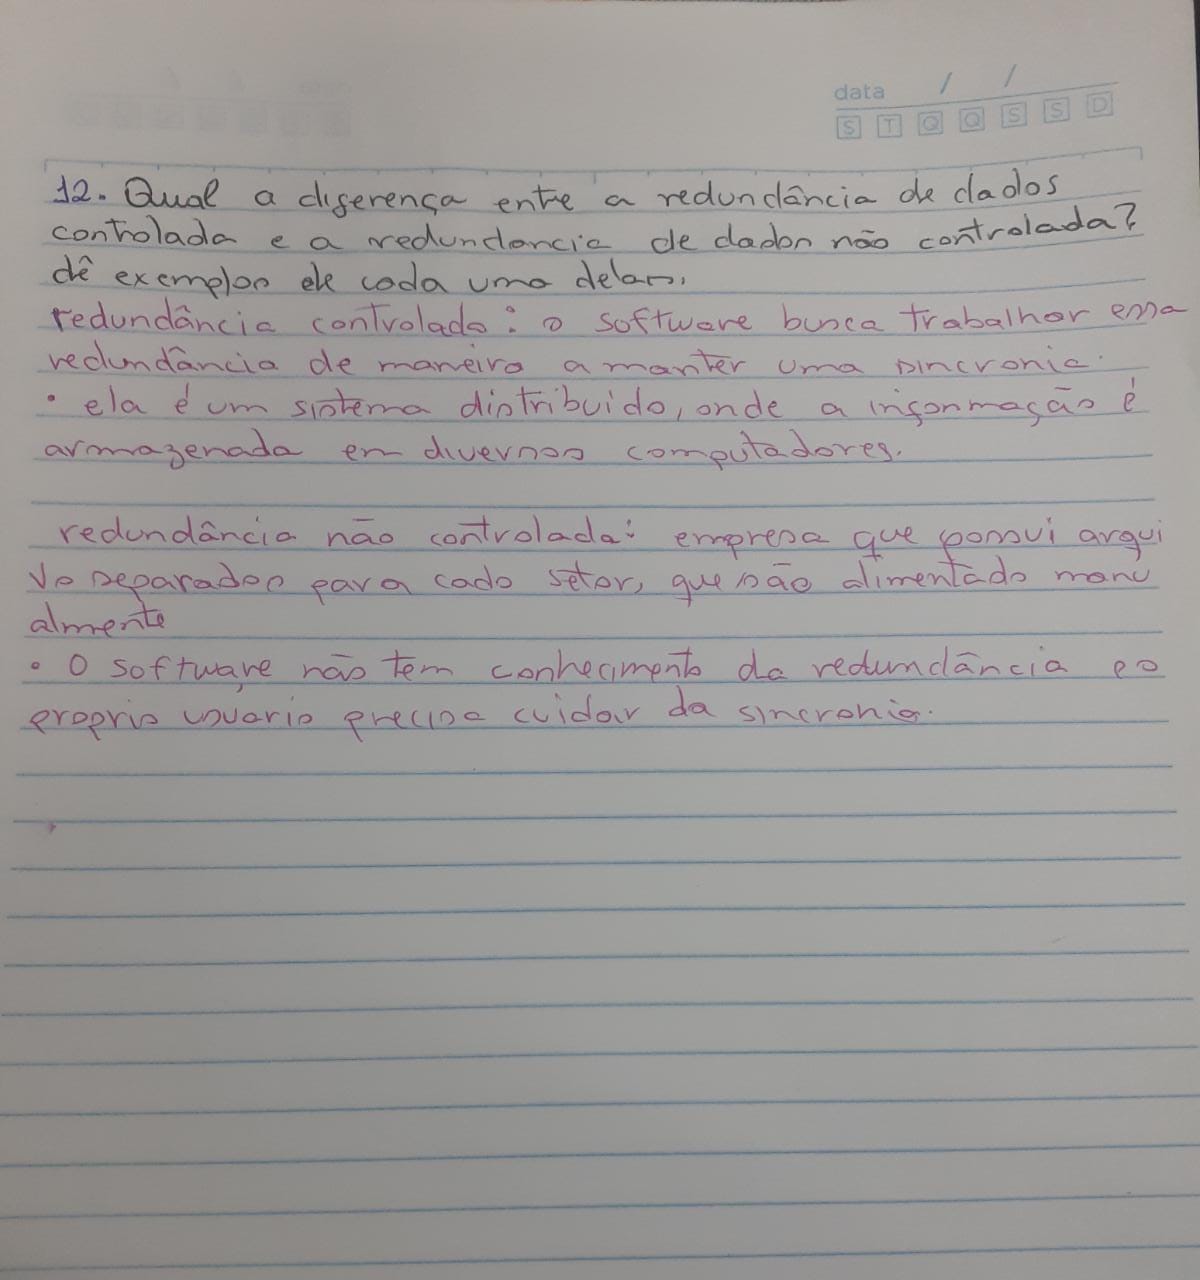 data / /
S T Q Q S S D
12. Qual a diferença entre a redundância de dados
controlada e a redundancia de dados não controlada?
dê exemplos de cada uma delas.
redundância controlada: o software busca trabalhar essa
redundância de maneira a manter uma sincronia.
• ela é um sistema distribuido, onde a informação é
armazenada em diversos computadores.
redundância não controlada: empresa que possui arqui
vo separados para cada setor, que são alimentado manu
almente
• O software não tem conhecimento da redundância e o
proprio usuario precisa cuidar da sincronia.